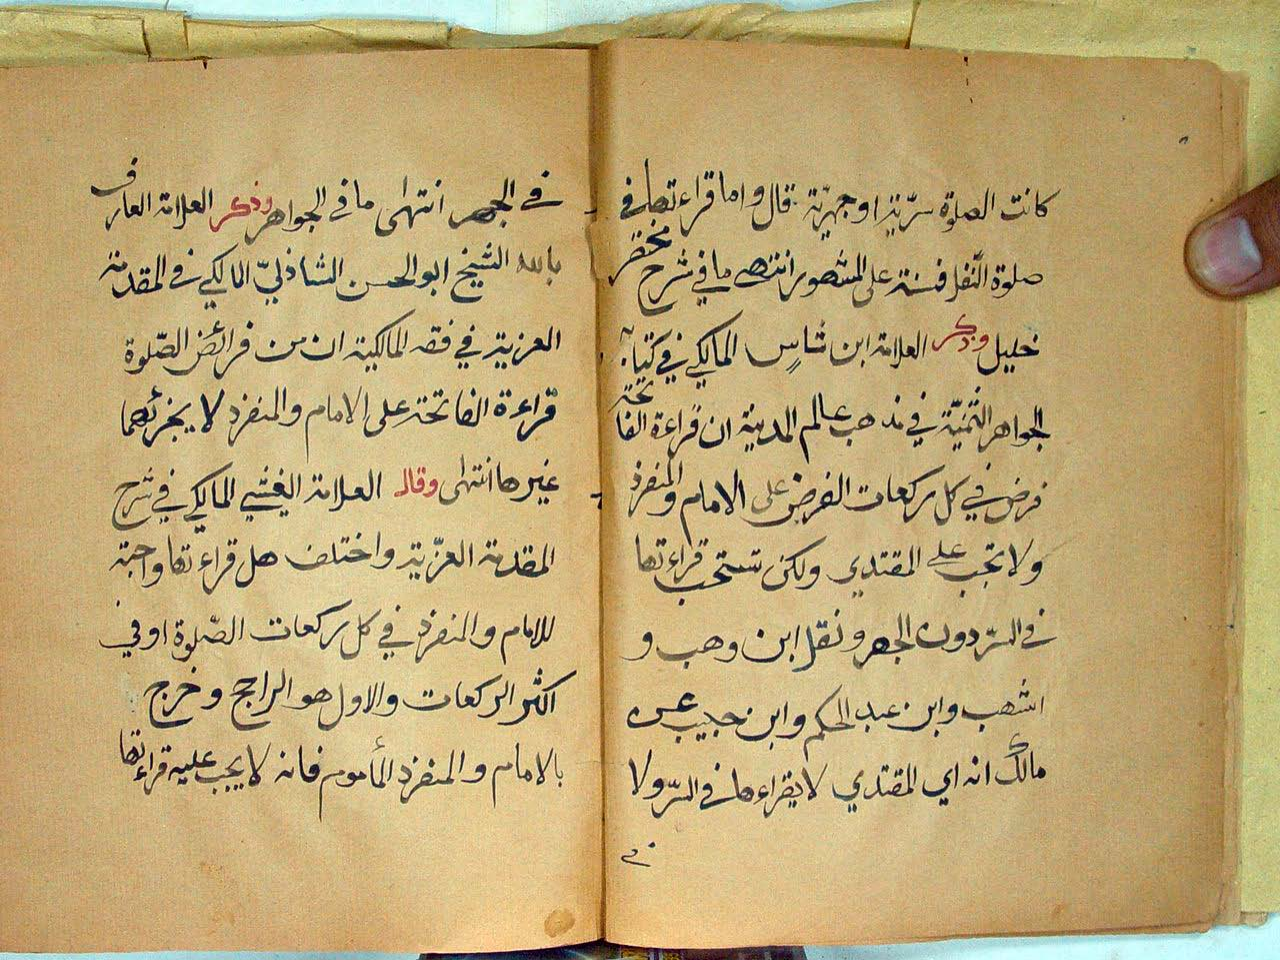 كانت الصلوة سرّية او جهريّة قال واما قراءتها في
صلوة النّفل فسنة على المشهور انتهى ما في شرح مختصر
خليل وذكر العلامة ابن شاسٍ المالكي في كتابه
الجواهر الثمنيّة في مذهب عالم المدينة ان قراءة الفاتحة
فرض في كل ركعات الفرض على الامام والمنفرد
ولا تجب على المقتدي ولكن تستحب قراءتها
في السّر دون الجهر ونقل ابن وهب و
اشهب وابن عبد الحكم وابن حبيب عن
مالك انه اي المقتدي لا يقراءها في السّر ولا
في
في الجهر انتهى ما في الجواهر وذكر العلامة العارف
بالله الشيخ ابو الحسن الشاذليّ المالكي في المقدمة
العزية في فقه المالكية ان من فرائض الصّلوة
قراءة الفاتحة على الامام والمنفرد لا يجزئهما
غيرها انتهى وقال العلامة الفشي المالكي في شرح
المقدمة العزّية واختلف هل قراءتها واجبة
للامام والمنفرد في كل ركعات الصّلوة او في
اكثر الركعات والاول هو الراجح وخرج
بالامام والمنفرد المأموم فانه لا يجب عليه قراءتها